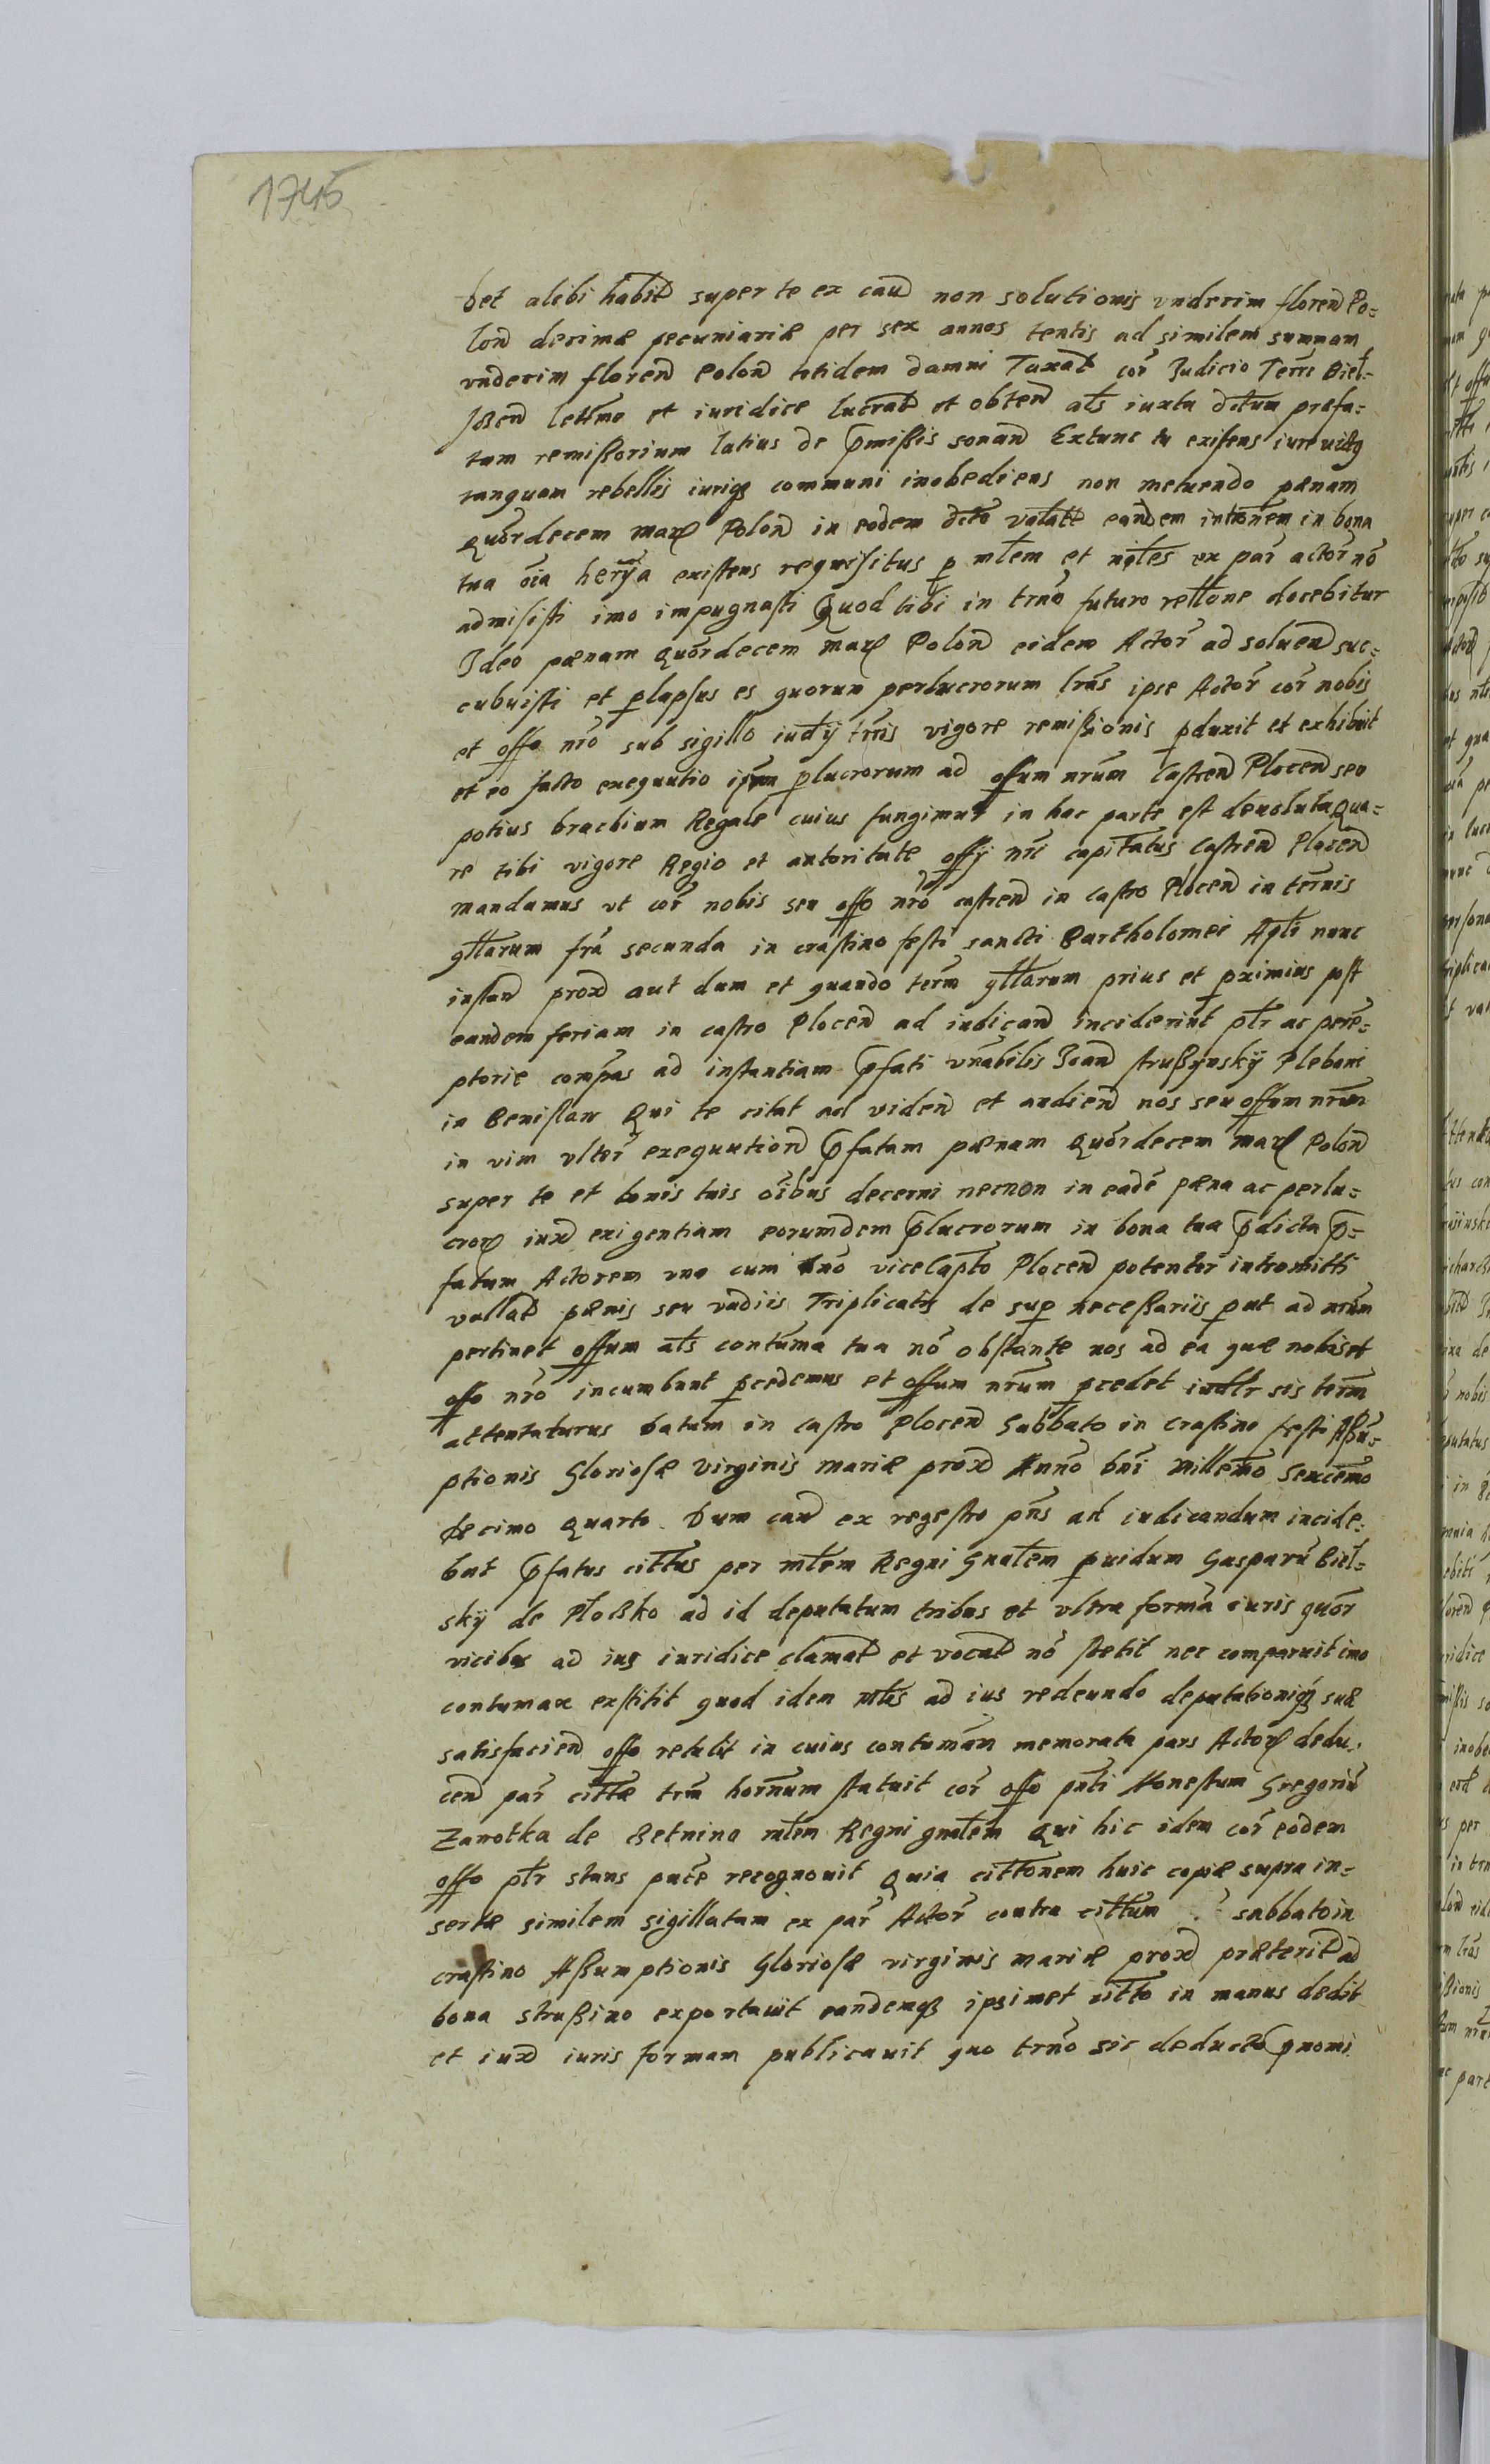 1745
bet alibi habit super te ex caus non solutionis vndecim floren Po=
lon decimæ pecuniariæ per sex annos tentis ad similem summam
vndecim floren Polon totidem damni Taxat cor Judicio Terr Biel=
scen lettme et iuridice lucrat et obten als iuxta dctum prefa=
tum remissorium latius de pmissis sonan Extunc tu existens iure
tanquam rebellis iurisq communi inobediens non metuendo pænam
quordecem mar Polon in eodem dcto vallatt eandem intronem in bona
tua oia existens requisitus p mtem et nobtes ex par actor no
admisisti imo impugnasti Quod tibi in trno futuro rettone docebitur
Ideo pænam quordecem mar Polon eidem Actor ad soluen suc=
cubuisti et plapsus es quorum perlucrorum lras ipse Actor cor nobis
et offo nro sub sigillo iudij trris vigore remissionis pduxit et exhibuit
et eo facto exequutio ipsorum plucrorum ad offum nrum Castren Plocen seu
potius brachium Regale cuius fungimur in hac parte est deuoluta Qua=
re tibi vigore Regio et autoritate offij nri capitatus Castren Plocen
mandamus vt cor nobis seu offo nro castren in castro Plocen in terminis
qttarum fra secunda in crastino festi sancti Bartholomei Apti nunc
instan prox aut dum et quando term qttarum prius et pximius post
eandem feriam in castro Plocen ad iudican inciderint ptr ac pere=
ptorie compas ad instantiam pfati vnabilis Ioan Strußynskij Plebani
in Qui te citat ad viden et audien nos seu offum nrum
in vim vlter exequution pfatam pænam quordecem mar Polon
super te et bonis tuis oibus decerni necnon in eade pæna ac perlu=
cror iux exigentiam eorumdem plucrorum in bona tua pdicta p=
fatum Actorem vna cum vicecapto Plocen potenter intromitti
vallat pænis seu vadiis Triplicatis de sup necessariis put ad nrum
pertinet offum als contuma tua no obstante nos ad ea quæ nobis et
offo nro incumbunt pcedemus et offum nrum pcedet iudlr sis term
attentaturus Datum in castro Plocen Sabbato in Crastino festi Assu=
ptionis Gloriosæ Virginis Mariæ prox Anno Dni Millemo Sexcemo
decimo quarto. Dum caus ex regestro pns ad iudicandum incide=
bat pfatus cittus per mtem Regni Gnatem puidum Gasparu Biel=
skij de Płoßko ad id deputatum tribus et vltra forma iuris quor
vicibus ad ius iuridice clamat et vocat no stetit nec comparuit imo
contumax exstitit quod idem mtis ad ius redeundo deputationiq suæ
satisfacien offo retulit in cuius contumam memorata pars Actor dedu=
cen par cittæ trm hornum statuit cor offo pnti Honestum Gregoriu
Zanotka de Setnino mtem Regni gnatem Qui hic idem cor eodem
offo ptr stans pnte recognouit Quia cittonem huic copiæ supra in=
sertæ similem sigillatam ex par Actor contra cittum sabbato in
crastino Assumptionis Gloriosæ virginis mariæ prox præterit ad
bona Strußino exportauit eandemq ipsimet citto in manus dedit
et iux iuris formam publicauit quo trno sic deducto